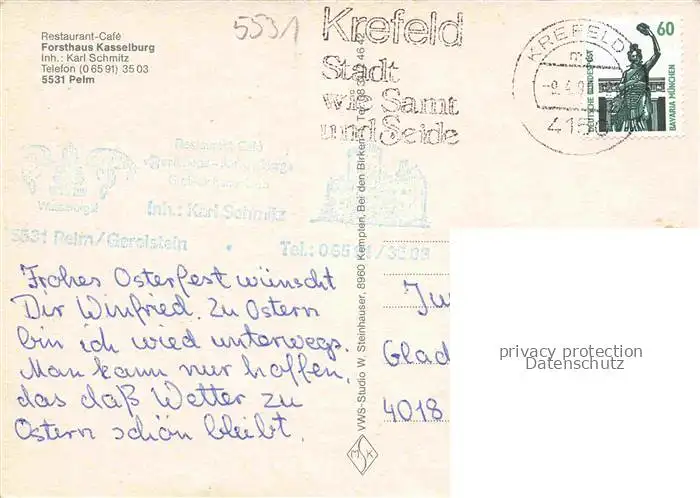 Restaurant-Café
Forsthaus Kasselburg
Inh.: Karl Schmitz
Telefon (0 65 91) 35 03
5531 Pelm
5531
Krefeld
Stadt
wie Samt
und Seide
KREFELD
415
60
DEUTSCHE BUNDESPOST
BAVARIA MÜNCHEN
Restaurant-Café
Inh.: Karl Schmitz
5531 Pelm/Gerolstein • Tel.: 065 91 / 35 03
Frohes Osterfest wünscht
Dir Winfried. Zu Ostern
bin ich wied unterwegs.
Man kann nur hoffen,
das daß Wetter zu
Ostern schön bleibt.
VWS-Studio W. Steinhauser, 8960 Kempten, Bei den Birken
MSK
Glad
4018
privacy protection
Datenschutz